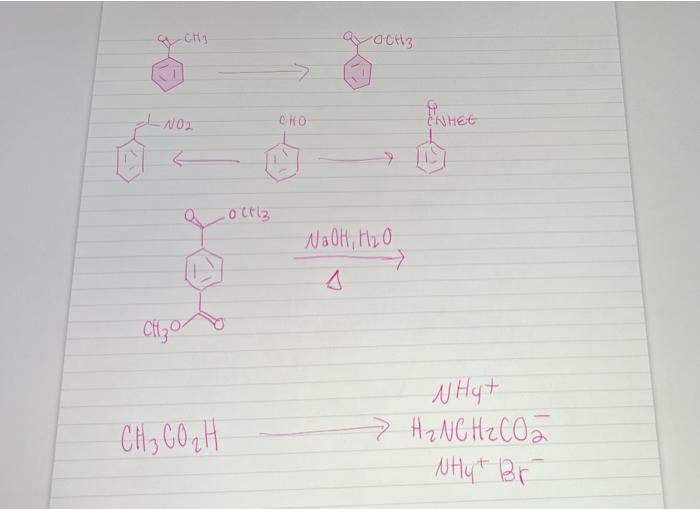 O CH3 O OCH3
NO2 CHO O CNHEt
O OCH3
NaOH, H2O
Δ
CH3O O
NH4+
CH3CO2H H2NCH2CO2-
NH4+ Br-